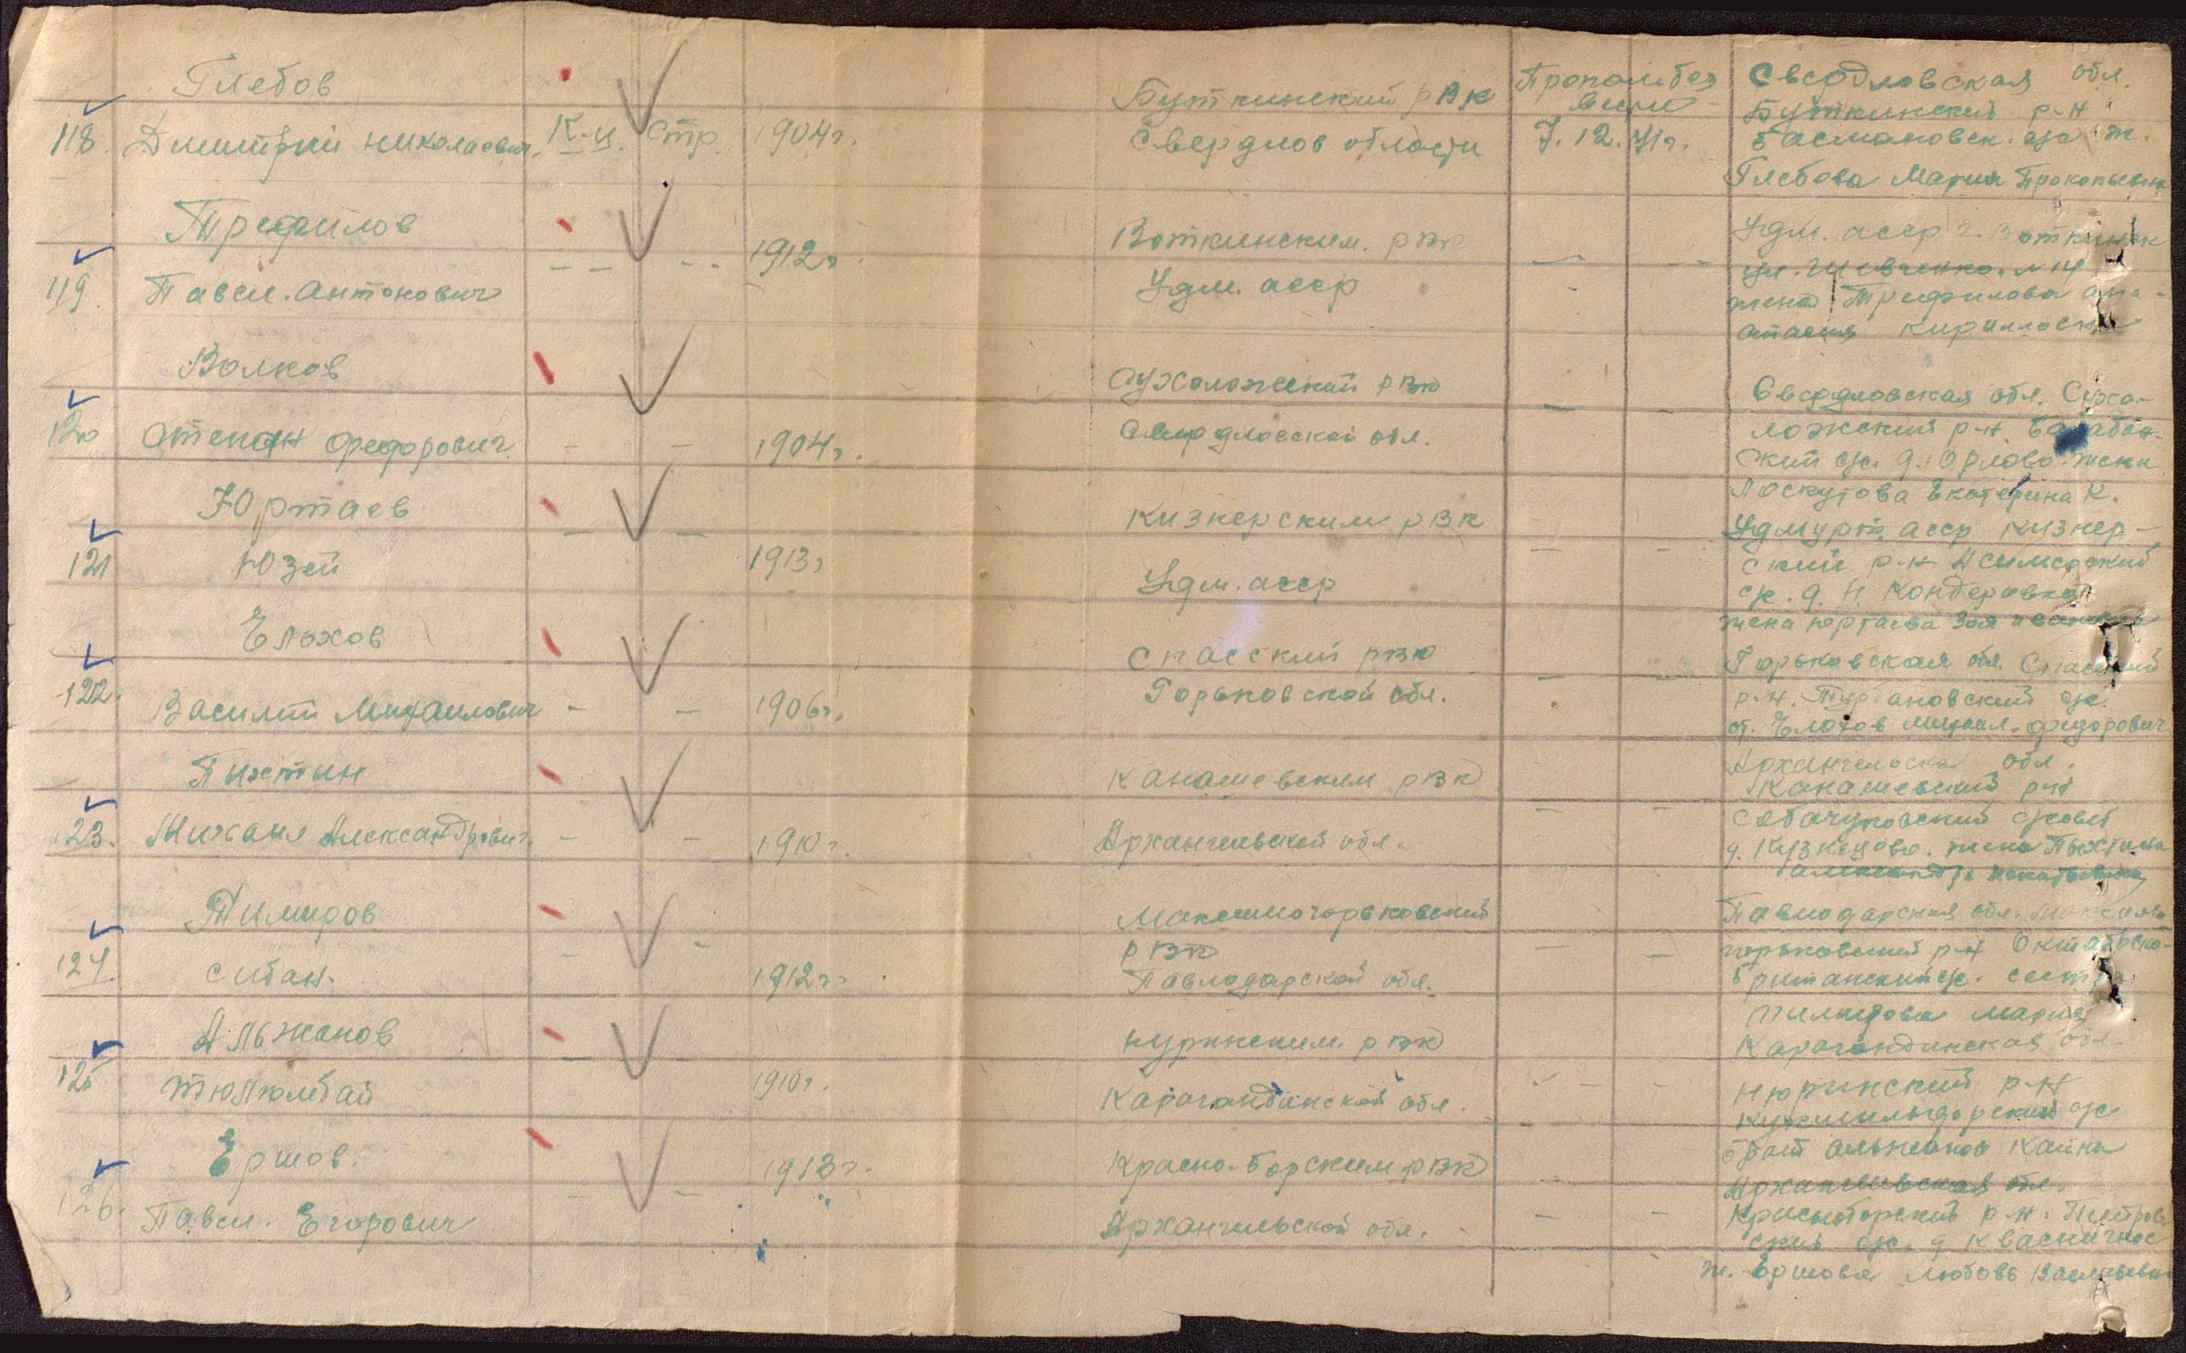 Глебов
118. Дмитрий Николаевич. К-ц. Стр. 1904г.
Буткинский рвк
Свердлов области
Пропал без
вести
7.12.41г.
Свердловская обл.
Буткинский р-н
Басмановск. с/с ж.
Глебова Мария Прокопьевна
Трефилов
119. Павел. Антонович - - - - 1912г.
Воткинским. рвк
Удм. асср
- -
Удм. асср г. Воткинск
ул. Шевченко. №
жена Трефилова Ана-
стасия Кирилловна
Волков
120 Степан Федорович - - 1904г.
Сухоложский рвк
Свердловской обл.
- -
Свердловская обл. Сухо-
ложский р-н.
ский с/с. д. Орлово жена
Лоскутова Екатерина К.
Юртаев
121 Юзей - - 1913г
Кизнерским рвк
Удм. асср
- -
Удмурт асср Кизнер-
ский р-н
с/с. д. Н. Кондеровка
жена Юртаева Зоя
Елохов
122. Василий Михайлович - - 1906г.
Спасский рвк
Горьковской обл.
- -
Горьковская обл. Спасский
р-н. с/с.
от. Елохов Михаил. Федорович
Пыхтин
123. Михаил Александрович. - - 1910г.
Канашевским рвк
Архангельской обл.
- -
Архангельская обл.
Канашевский р-н
с/совет
д. Кузнецово. жена Пыхтина
Александра
Тимиров
124. Сибан. - - 1912г.
Максимогорьковский
рвк
Павлодарской обл.
- -
Павлодарская обл. Максимо
горьковский р-н
с/с. сестра
Мария
Альжанов
125 Тюлюмбай - 1910г.
Нуринским. рвк
Карагандинской обл.
- - -
Карагандинская обл.
Нюринский р-н
с/с
брат Альжанов
Ершов.
126. Павел. Егорович - - 1913г.
Красно-Борским рвк
Архангельской обл.
- -
Архангельская обл.
Красноборский р-н.
с/с. д
ж. Ершова Любовь Васильевна